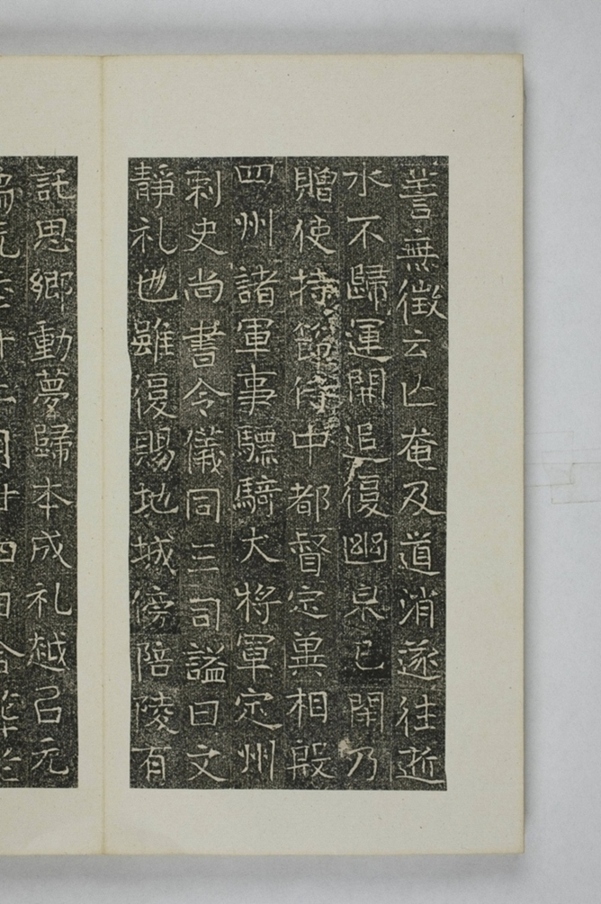 善無徵云亡奄及道消遂往逝
水不歸運開追復幽泉已閇乃
贈使持節侍中都督定冀相殷
四州諸軍事驃騎大將軍定州
刺史尚書令儀同三司謚曰文
靜礼也雖復賜地城傍陪陵有
託思鄉動夢歸本成礼越㠯元
廿四日合葬